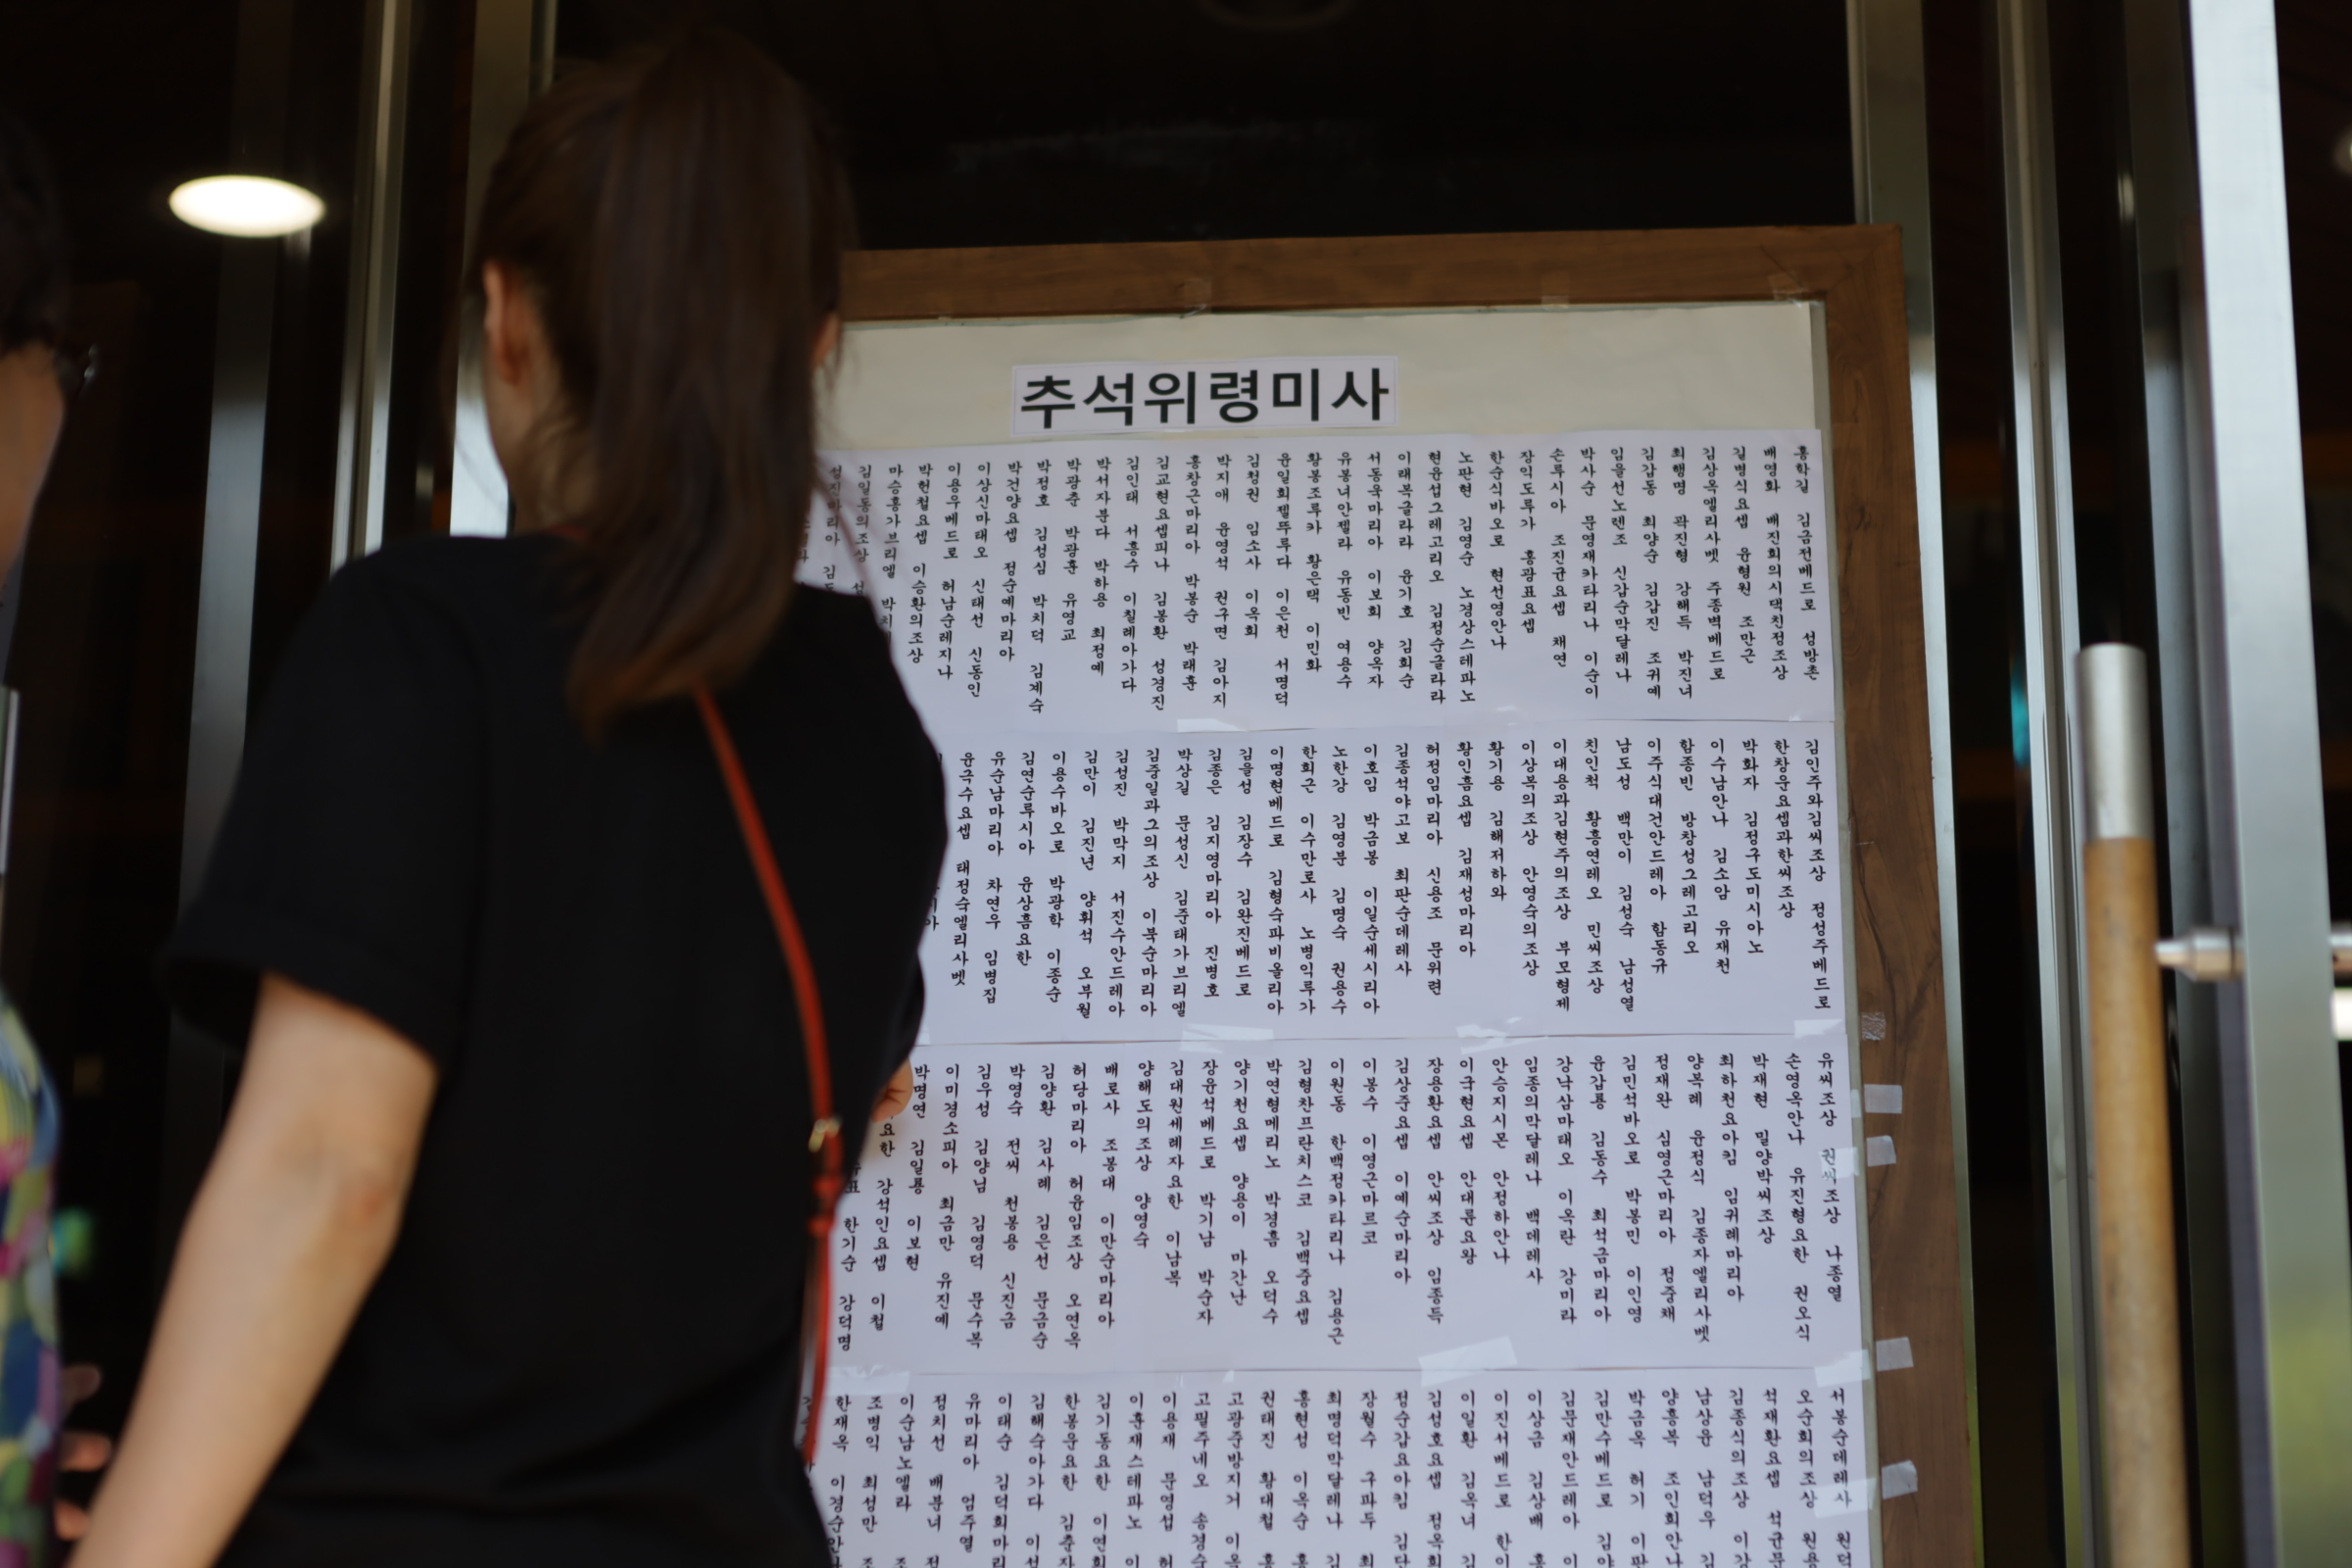 추석위령미사
홍학길 김금전베드로 성방촌
배영화 배진회의시댁친정조상
길병식요셉 윤형원 조만근
김상옥엘리사벳 주종벽베드로
최행명 곽진형 강해득 박진녀
김갑동 최양순 김갑진 조귀예
임을선노렌조 신갑순막달레나
박사순 문영재카타리나 이순이
손루시아 조진균요셉 채연
장익도루가 홍광표요셉
한순식바오로 현선영안나
노판현 김영순 노경상스테파노
현윤섭그레고리오 김정순글라라
이래복글라라 윤기호 김회순
서동욱마리아 이보회 양옥자
유봉녀안젤라 유동빈 여용수
황봉조루카 황은택 이민화
윤일회젤뚜루다 이은천 서명덕
김청권 임소사 이옥회
박지애 윤영석 권구면 김아지
홍창근마리아 박봉순 박래훈
김교현요셉피나 김봉환 성경진
김인태 서흥수 이칠례아가다
박서자분다 박하용 최정예
박광춘 박광훈 유영교
박정호 김성심 박치덕 김계숙
박건양요셉 정순예마리아
이상신마태오 신태선 신동인
이용우베드로 허남순레지나
박헌철요셉 이승환의조상
마승흥가브리엘
김일동의조상
김인주와김씨조상 정성주베드로
한창운요셉과한씨조상
박화자 김정구도미시아노
이수남안나 김소암 유재천
함종빈 방창성그레고리오
이주식대건안드레아 함동규
남도성 백만이 김성숙 남성열
친인척 황흥연레오 민씨조상
이대용과김현주의조상 부모형제
이상복의조상 안영숙의조상
황기용 김해저하와
황인흠요셉 김재성마리아
허정임마리아 신용조 문위련
김종석야고보 최판순데레사
이호임 박금봉 이일순세시리아
노한강 김영분 김명숙 권용수
한회근 이수만로사 노병익루가
이명현베드로 김형숙파비올리아
김을성 김장수 김완진베드로
김종은 김지영마리아 진병호
박상길 문성신 김준태가브리엘
김중일과그의조상 이북순마리아
김성진 박막지 서진수안드레아
김만이 김진년 양휘석 오부월
이용수바오로 박광학 이종순
김연순루시아 윤상흠요한
유순남마리아 차연우 임병집
윤국수요셉 태정숙엘리사벳
유씨조상 권씨조상 나종열
손영옥안나 유진형요한 권오식
박재현 밀양박씨조상
최하천요아킴 임귀례마리아
양복례 윤정식 김종자엘리사벳
정재완 심영근마리아 정중채
김민석바오로 박봉민 이인영
윤갑룡 김동수 최석금마리아
강낙삼마태오 이옥란 강미라
임종의막달레나 백데레사
안승지시몬 안정하안나
이국현요셉 안대륜요왕
장용환요셉 안씨조상 임종득
김상준요셉 이예순마리아
이봉수 이영근마르코
이원동 한백정카타리나 김용근
김형찬프란치스코 김백중요셉
박연형메리노 박경흠 오덕수
양기천요셉 양용이 마간난
장윤석베드로 박기남 박순자
김대원세례자요한 이남복
양해도의조상 양영숙
배로사 조봉대 이만순마리아
허당마리아 허윤임조상 오연옥
김양환 김사례 김은선 문금순
박영숙 전씨 천봉용 신진금
김우성 김양님 김영덕 문수복
이미경소피아 최금만 유진예
박명연 김일룡 이보현
요한 강석인요셉 이철
한기순 강덕명
서봉순데레사 원덕
오순회의조상 원용
석재환요셉 석균문
김종식의조상 이강
남상윤 남덕우 김
양흥복 조인회안나
박금옥 허기 이판
김만수베드로 김야
김문재안드레아 이
이상금 김상배 홍
이진서베드로 한이
이일환 김옥녀 김
김성호요셉 정옥회
정순갑요아킴 김단
장월수 구파두 최
최명덕막달레나 김
홍현성 이옥순 홍
권태진 황대철 홍
고광준방지거 이옥
고필주네오 송경순
이용재 문영섭 허
이훈재스테파노 이
김기동요한 이연회
한봉운요한 김춘자
김해숙아가다 이석
이태순 김덕회마리
유마리아 엄주열
정치선 배분녀 전
이순남노엘라 조
조병익 최성만 조
한재옥 이경순안나